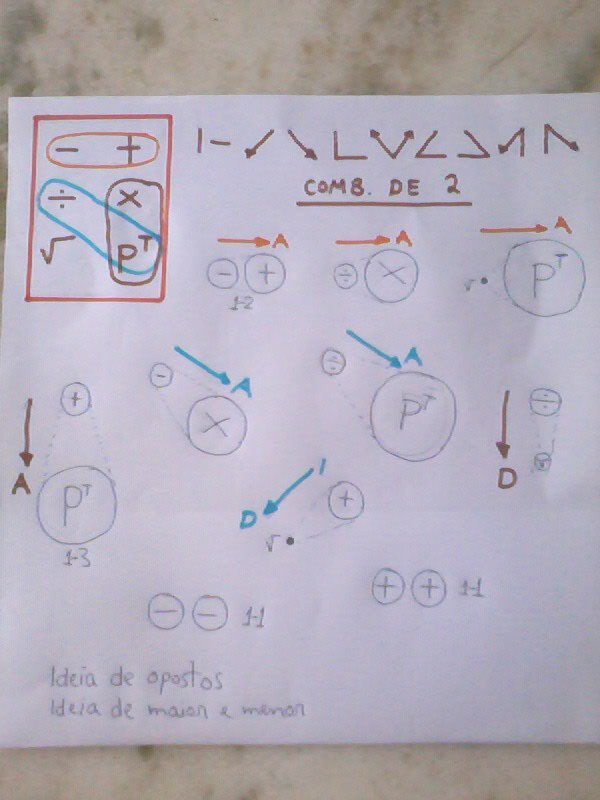 − +
÷ ×
√ Pᵀ
COMB. DE 2
A A A
− + ÷ × √ Pᵀ
1-2
A A
− ÷
× Pᵀ
+ ÷
A D
Pᵀ
1-3
D +
√
+ + 1-1
− − 1-1
Ideia de opostos
Ideia de maior e menor